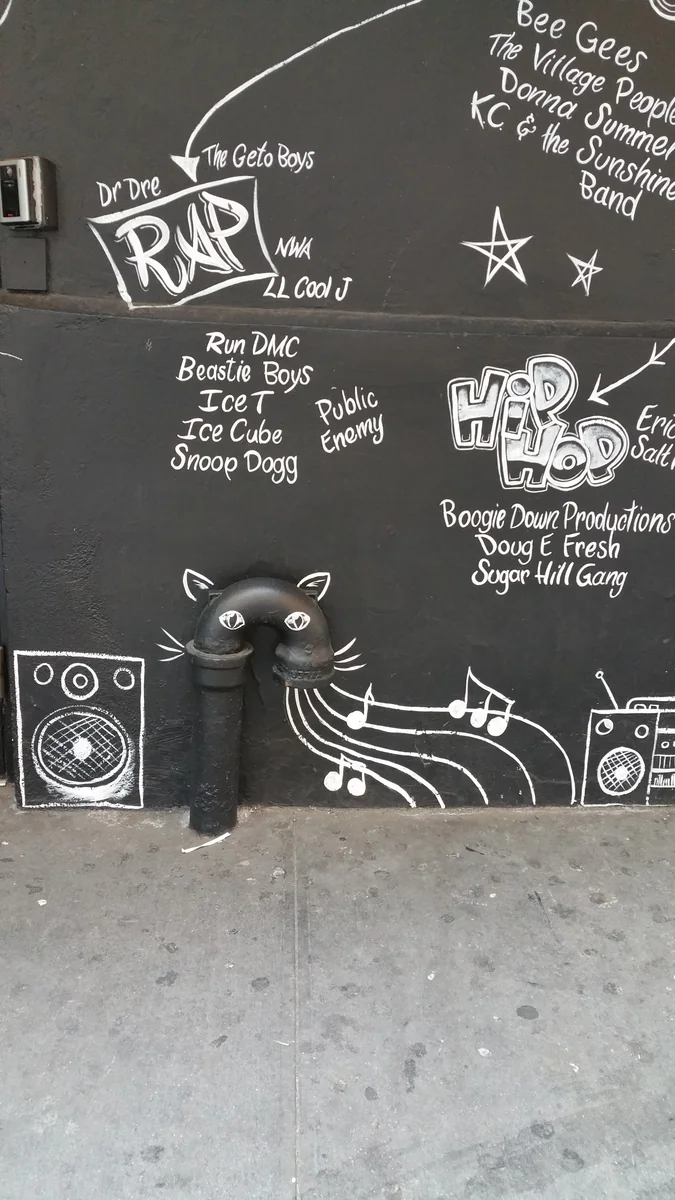 Bee Gees
The Village People
Donna Summer
KC & the Sunshine
Band
The Geto Boys
Dr Dre
RAP
NWA
LL Cool J
Run DMC
Beastie Boys
Ice T
Ice Cube
Snoop Dogg
Public
Enemy
HIP
HOP
Eric
Salt
Boogie Down Productions
Doug E Fresh
Sugar Hill Gang